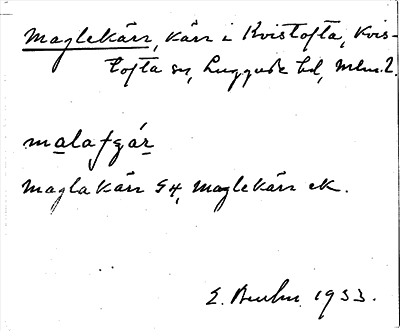 Maglekärr, kärr i Kvistofta, Kvis-
tofta sn, Luggude hd, Mlm. l.
Maglakärr GH, Maglekärr ek.
E. 1933.